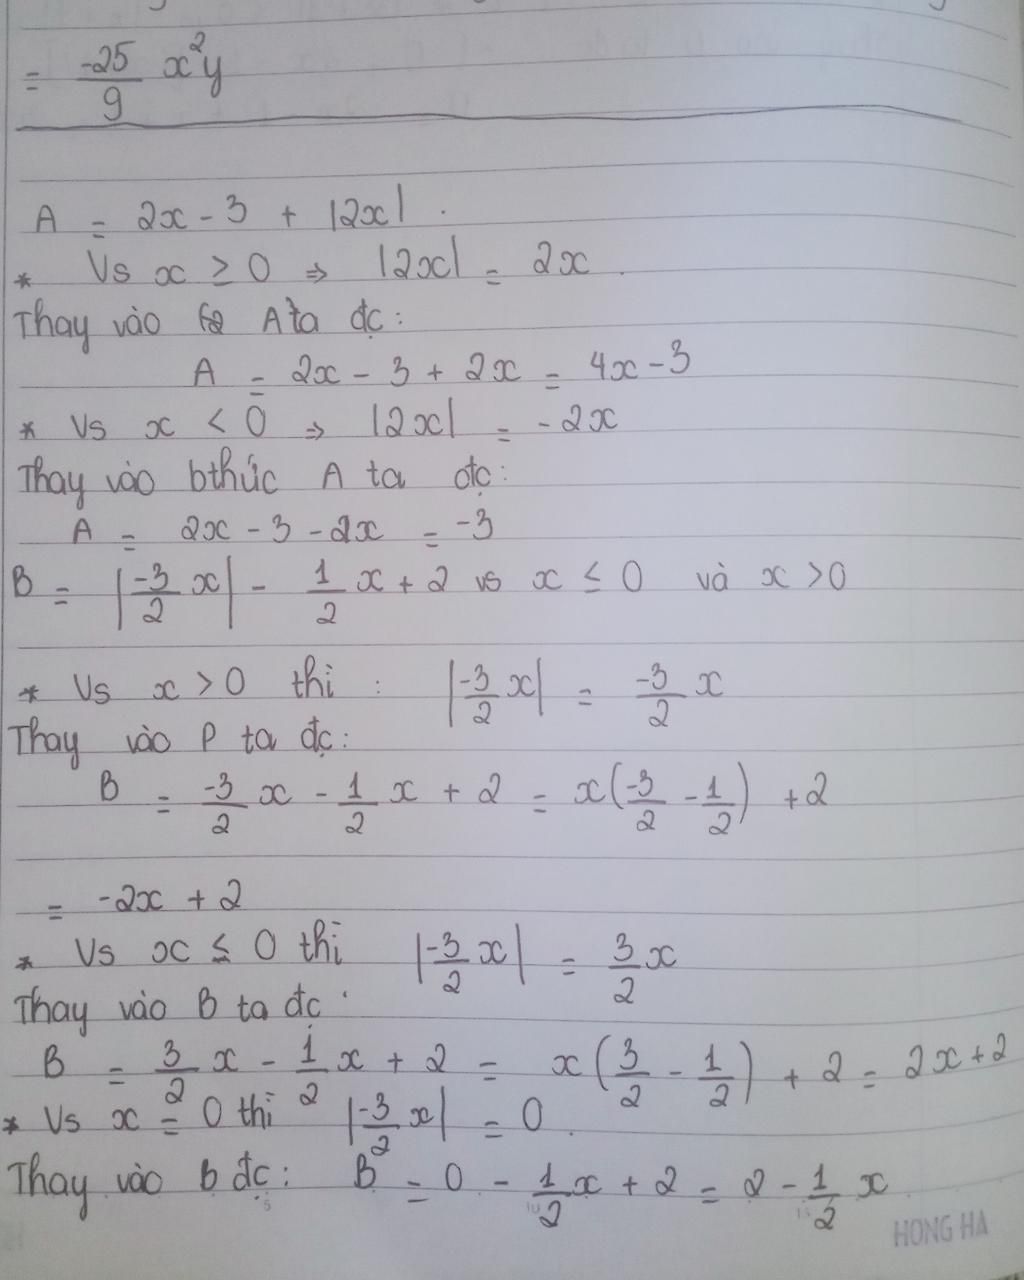 = -25/9 x²y
A = 2x - 3 + |2x|.
* Vs x ≥ 0 ⇒ |2x| = 2x.
Thay vào A ta đc:
A = 2x - 3 + 2x = 4x - 3
* Vs x < 0 ⇒ |2x| = -2x
Thay vào bthức A ta đc:
A = 2x - 3 - 2x = -3
B = |-3/2 x| - 1/2 x + 2 vs x ≤ 0 và x > 0
* Vs x > 0 thì : |-3/2 x| = -3/2 x
Thay vào P ta đc:
B = -3/2 x - 1/2 x + 2 = x(-3/2 - 1/2) + 2
= -2x + 2
* Vs x ≤ 0 thì |-3/2 x| = 3/2 x
Thay vào B ta đc:
B = 3/2 x - 1/2 x + 2 = x(3/2 - 1/2) + 2 = 2x + 2
* Vs x = 0 thì |-3/2 x| = 0.
Thay vào B đc: B = 0 - 1/2 x + 2 = 2 - 1/2 x
HONG HA